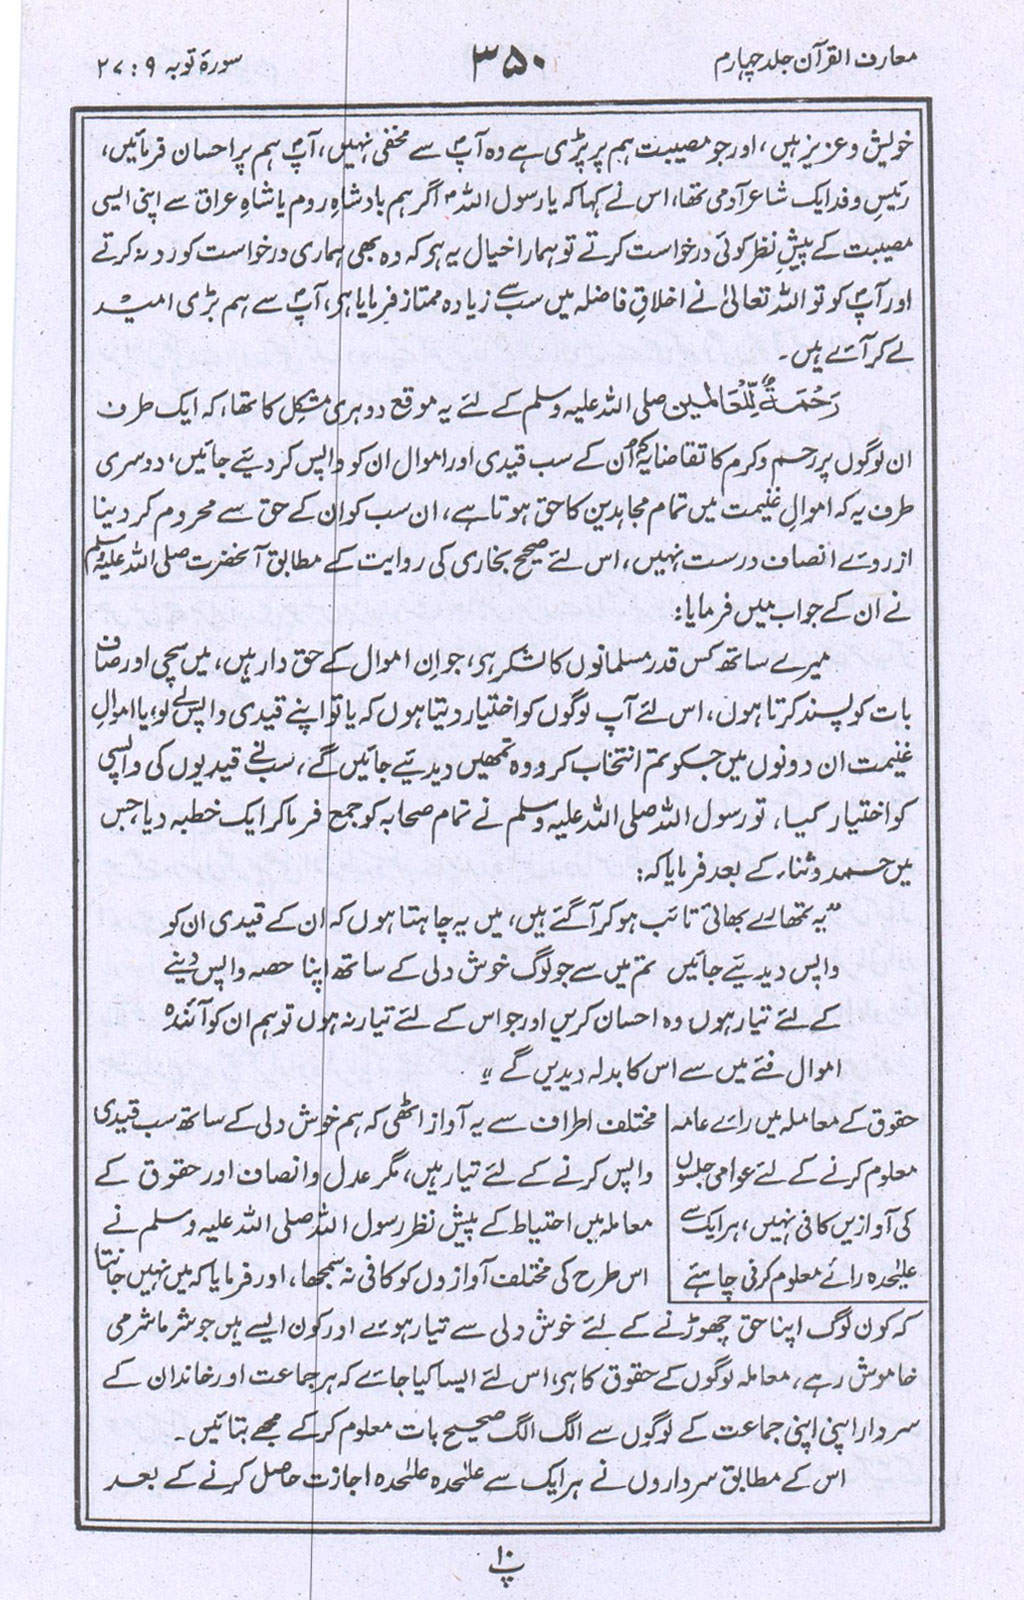 معارف القرآن جلد چہارم
۳۵۰
سورۂ توبہ ۹ : ۲۷
خویش و عزیز ہیں، اور جو مصیبت ہم پر پڑی ہے وہ آپؐ سے مخفی نہیں، آپؐ ہم پر احسان فرمائیں،
رئیسِ وفد ایک شاعر آدمی تھا، اس نے کہا کہ یا رسول اللہؐ اگر ہم بادشاہِ روم یا شاہِ عراق سے اپنی ایسی
مصیبت کے پیشِ نظر کوئی درخواست کرتے تو ہمارا خیال یہ ہی کہ وہ بھی ہماری درخواست کو رد نہ کرتے
اور آپؐ کو تو اللہ تعالیٰ نے اخلاقِ فاضلہ میں سب سے زیادہ ممتاز فرمایا ہی، آپؐ سے ہم بڑی امید
لے کر آئے ہیں۔
رَحْمَۃٌ لِّلْعَالَمِین صلی اللہ علیہ وسلم کے لئے یہ موقع دوہری مشکل کا تھا، کہ ایک طرف
ان لوگوں پر رحم و کرم کا تقاضا یہ کہ اُن کے سب قیدی اور اموال ان کو واپس کر دیئے جائیں، دوسری
طرف یہ کہ اموالِ غنیمت میں تمام مجاہدین کا حق ہوتا ہے، ان سب کو ان کے حق سے محروم کر دینا
از روئے انصاف درست نہیں، اس لئے صحیح بخاری کی روایت کے مطابق آنحضرت صلی اللہ علیہ وسلم
نے ان کے جواب میں فرمایا:
میرے ساتھ کس قدر مسلمانوں کا لشکر ہی، جو ان اموال کے حق دار ہیں، میں سچی اور صاف
بات کو پسند کرتا ہوں، اس لئے آپ لوگوں کو اختیار دیتا ہوں کہ یا تو اپنے قیدی واپس لے لو، یا اموالِ
غنیمت ان دونوں میں جس کو تم انتخاب کرو وہ تمھیں دیدیئے جائیں گے، سب نے قیدیوں کی واپسی
کو اختیار کیا، تو رسول اللہ صلی اللہ علیہ وسلم نے تمام صحابہ کو جمع فرما کر ایک خطبہ دیا جس
میں حمد و ثناء کے بعد فرمایا کہ:
”یہ تمھارے بھائی تائب ہو کر آ گئے ہیں، میں یہ چاہتا ہوں کہ ان کے قیدی ان کو
واپس دیدیئے جائیں تم میں سے جو لوگ خوش دلی کے ساتھ اپنا حصہ واپس دینے
کے لئے تیار ہوں وہ احسان کریں اور جو اس کے لئے تیار نہ ہوں تو ہم ان کو آئندہ
اموال فئے میں سے اس کا بدلہ دیدیں گے“
حقوق کے معاملہ میں رائے عامہ
معلوم کرنے کے لئے عوامی جلسوں
کی آوازیں کافی نہیں، ہر ایک سے
علیٰحدہ رائے معلوم کرنی چاہئے
مختلف اطراف سے یہ آواز اٹھی کہ ہم خوش دلی کے ساتھ سب قیدی
واپس کرنے کے لئے تیار ہیں، مگر عدل و انصاف اور حقوق کے
معاملہ میں احتیاط کے پیش نظر رسول اللہ صلی اللہ علیہ وسلم نے
اس طرح کی مختلف آوازوں کو کافی نہ سمجھا، اور فرمایا کہ میں نہیں جانتا
کہ کون لوگ اپنا حق چھوڑنے کے لئے خوش دلی سے تیار ہوئے اور کون ایسے ہیں جو شرما شرمی
خاموش رہے، معاملہ لوگوں کے حقوق کا ہی، اس لئے ایسا کیا جائے کہ ہر جماعت اور خاندان کے
سردار اپنی اپنی جماعت کے لوگوں سے الگ الگ صحیح بات معلوم کر کے مجھے بتائیں۔
اس کے مطابق سرداروں نے ہر ایک سے علیٰحدہ علیٰحدہ اجازت حاصل کرنے کے بعد
پ۱۰